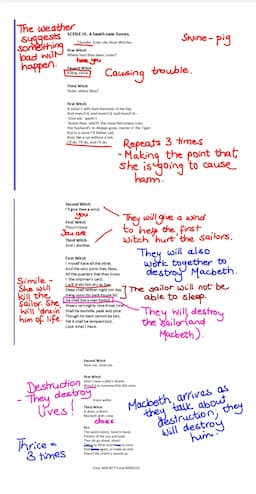 The weather
suggests
something
bad will
happen.
SCENE III. A heath near Forres.
Thunder. Enter the three Witches
First Witch
Where hast thou been, sister?
have you
Second Witch
Killing swine.
Swine - pig
Causing trouble.
Third Witch
Sister, where thou?
First Witch
A sailor's wife had chestnuts in her lap,
And munch'd, and munch'd, and munch'd:--
'Give me,' quoth I:
'Aroint thee, witch!' the rump-fed ronyon cries.
Her husband's to Aleppo gone, master o' the Tiger:
But in a sieve I'll thither sail,
And, like a rat without a tail,
I'll do, I'll do, and I'll do.
Repeats 3 times
- Making the point that
she is going to cause
harm.
Second Witch
I'll give thee a wind.
you
First Witch
Thou'rt kind.
You are
Third Witch
And I another.
They will give a wind
to help the first
witch 'hurt' the sailors.
They will also
work together to
destroy Macbeth.
First Witch
I myself have all the other,
And the very ports they blow,
All the quarters that they know
I' the shipman's card.
I will drain him dry as hay:
Sleep shall neither night nor day
Hang upon his pent-house lid;
He shall live a man forbid:
Weary se'nnights nine times nine
Shall he dwindle, peak and pine:
Though his bark cannot be lost,
Yet it shall be tempest-tost.
Look what I have.
Simile -
She will
kill the
sailor. She
will 'drain'
him of life
The sailor will not be
able to sleep.
They will destroy
the sailor (and
Macbeth).
Second Witch
Show me, show me.
First Witch
Here I have a pilot's thumb,
Wreck'd as homeward he did come.
Drum within
Third Witch
A drum, a drum!
Macbeth doth come.
does
ALL
The weird sisters, hand in hand,
Posters of the sea and land,
Thus do go about, about:
Thrice to thine and thrice to mine
And thrice again, to make up nine.
Peace! the charm's wound up.
Destruction
- They destroy
lives!
Macbeth arrives as
they talk about
destruction, they
will destroy
him.
Thrice =
3 times
Enter MACBETH and BANQUO